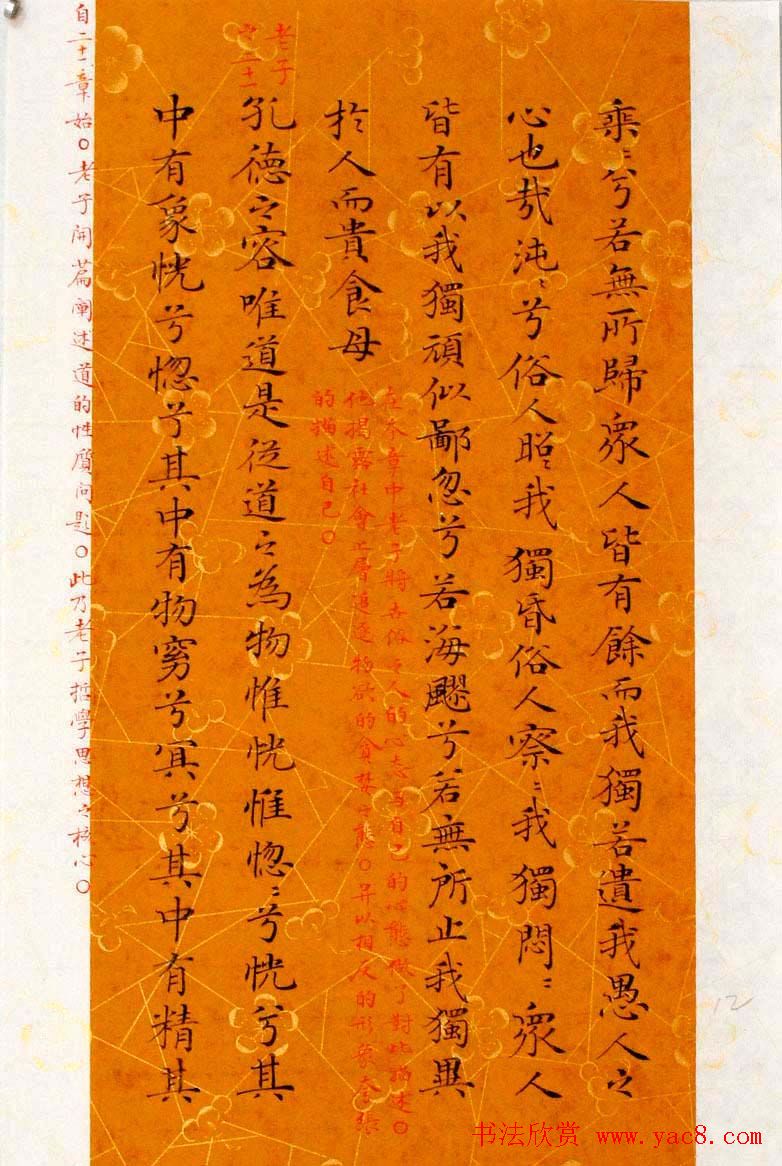 乘〻兮若無所歸衆人皆有餘而我獨若遺我愚人之
心也哉沌〻兮俗人昭〻我獨昏俗人察〻我獨悶〻衆人
皆有以我獨頑似鄙忽兮若海飂兮若無所止我獨異
於人而貴食母
在本章中老子將世俗之人的心态与自己的心態做了對比描述〇
他揭露社會上層追逐物欲的貪婪之態〇并以相反的形象夸張
的描述自己〇
老子
之二十一
孔德之容唯道是從道之為物惟恍惟惚〻兮恍兮其
中有象恍兮惚兮其中有物窈兮冥兮其中有精其
自二十一章始〇老子開篇阐述道的性質问题〇此乃老子哲學思想之核心〇
12
书法欣赏 www.yac8.com